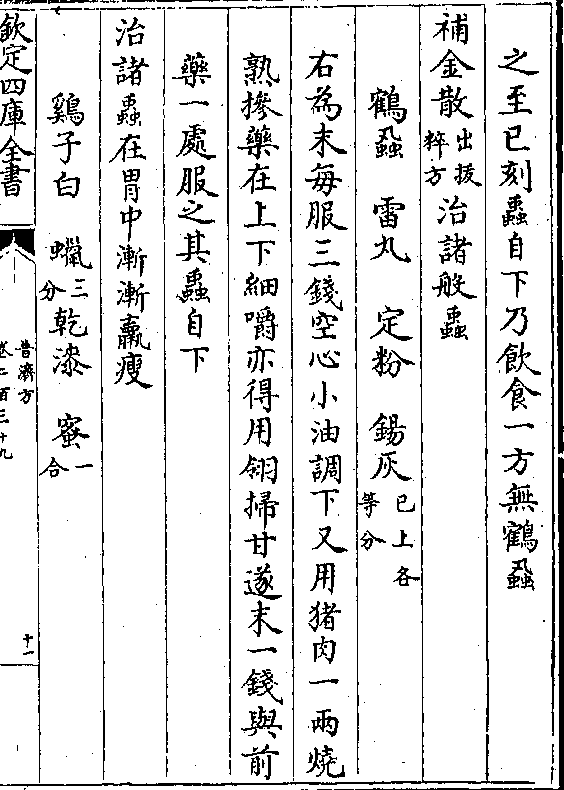 之至巳刻蟲自下乃飲食一方無鶴蝨
補金散出拔粹方治諸般蟲
鶴蝨 雷丸 定粉 錫灰已上各等分
右為末每服三錢空心小油調下又用猪肉一兩燒
熟摻藥在上下細嚼亦得用翎掃甘遂末一錢與前
藥一處服之其蟲自下
治諸蟲在胃中漸漸羸瘦
鷄子白 蠟三分 乾漆 蜜一合
欽定四庫全書
普濟方
卷二百三十九
十一